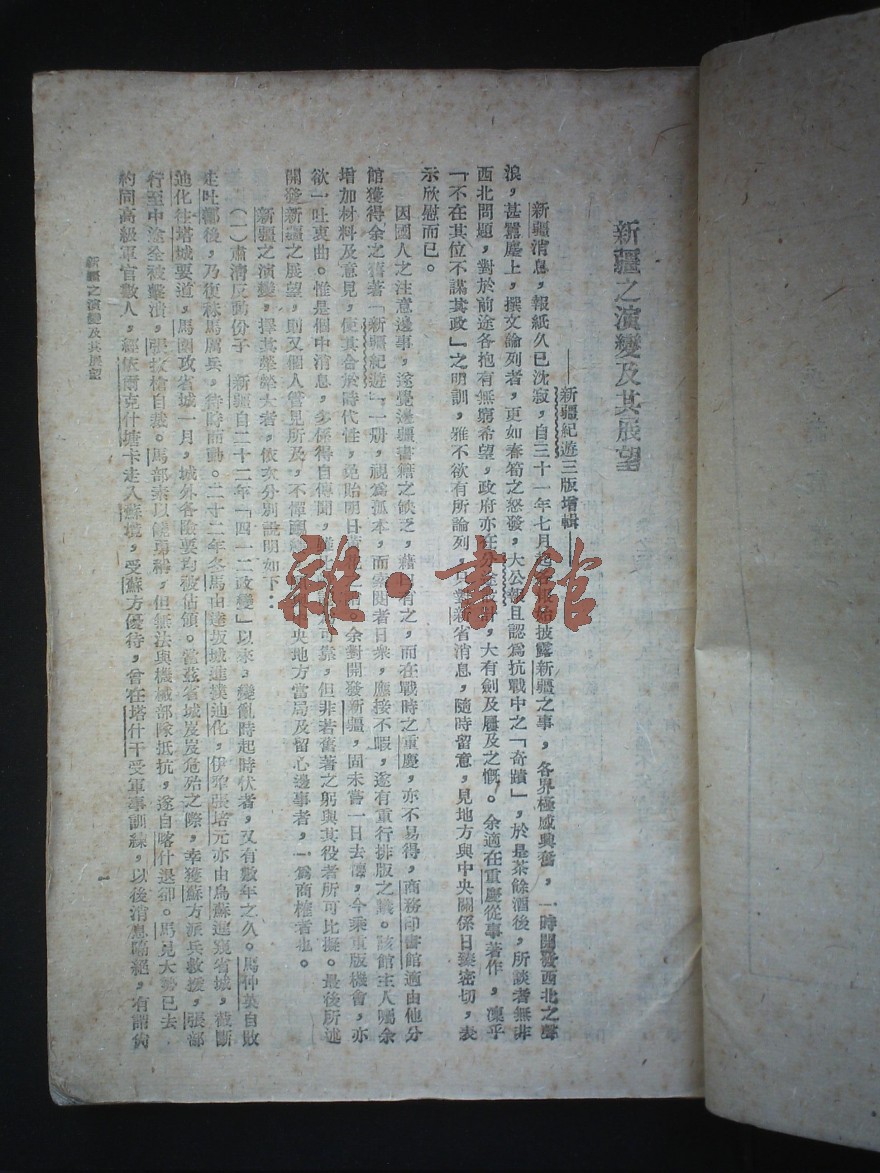 新疆之演變及其展望
——新疆紀遊三版增輯——
新疆消息，報紙久已沈寂，自三十一年七月起披露新疆之事，各界極感興奮，一時開發西北之聲
浪，甚囂塵上，撰文論列者，更如春筍之怒發，大公報且認爲抗戰中之「奇蹟」，於是茶餘酒後，所談者無非
西北問題，對於前途各抱有無窮希望，政府亦在，大有劍及屨及之慨。余適在重慶從事著作，凜乎
「不在其位不謀其政」之明訓，雅不欲有所論列，只對新省消息，隨時留意，見地方與中央關係日臻密切，表
示欣慰而已。
因國人之注意邊事，遂覺邊疆書籍之缺乏，藉有之，而在戰時之重慶，亦不易得，商務印書館適由他分
館獲得余之舊著「新疆紀遊」一册，視爲孤本，而索閱者日衆，應接不暇，遂有重行排版之議。該館主人囑余
增加材料及意見，使其合於時代性，免貽明日黃花之誚。余對開發新疆，固未嘗一日去懷，今乘重版機會，亦
欲一吐衷曲。惟是個中消息，多係得自傳聞，可靠，但非若舊著之躬與其役者所可比擬。最後所述
開發新疆之展望，則又個人管見所及，不憚央地方當局及留心邊事者，一爲商榷者也。
新疆之演變，擇其犖犖大者，依次分別說明如下：
（一）肅清反動份子　新疆自二十二年「四一二政變」以來，變亂時起時伏者，又有數年之久。馬仲英自敗
走吐鄯後，乃復秣馬厲兵，待時而動。二十二年冬馬由達坂城進撲迪化，伊犂張培元亦由烏蘇進窺省城，截斷
迪化往塔城要道，馬圍攻省城一月，城外各險要均被佔領。當茲省城岌岌危殆之際，幸獲蘇方派兵救援，張部
行至中途全被擊潰，張拔槍自裁。馬部素以饒勇稱，但無法與機械部隊抵抗，遂自喀什退卻。馬見大勢已去，
約同高級軍官數人，經依爾克什塘卡走入蘇境，受蘇方優待，會在塔什干受軍事訓練，以後消息隔絕，有謂尙
新疆之演變及其展望
一
雜·書館